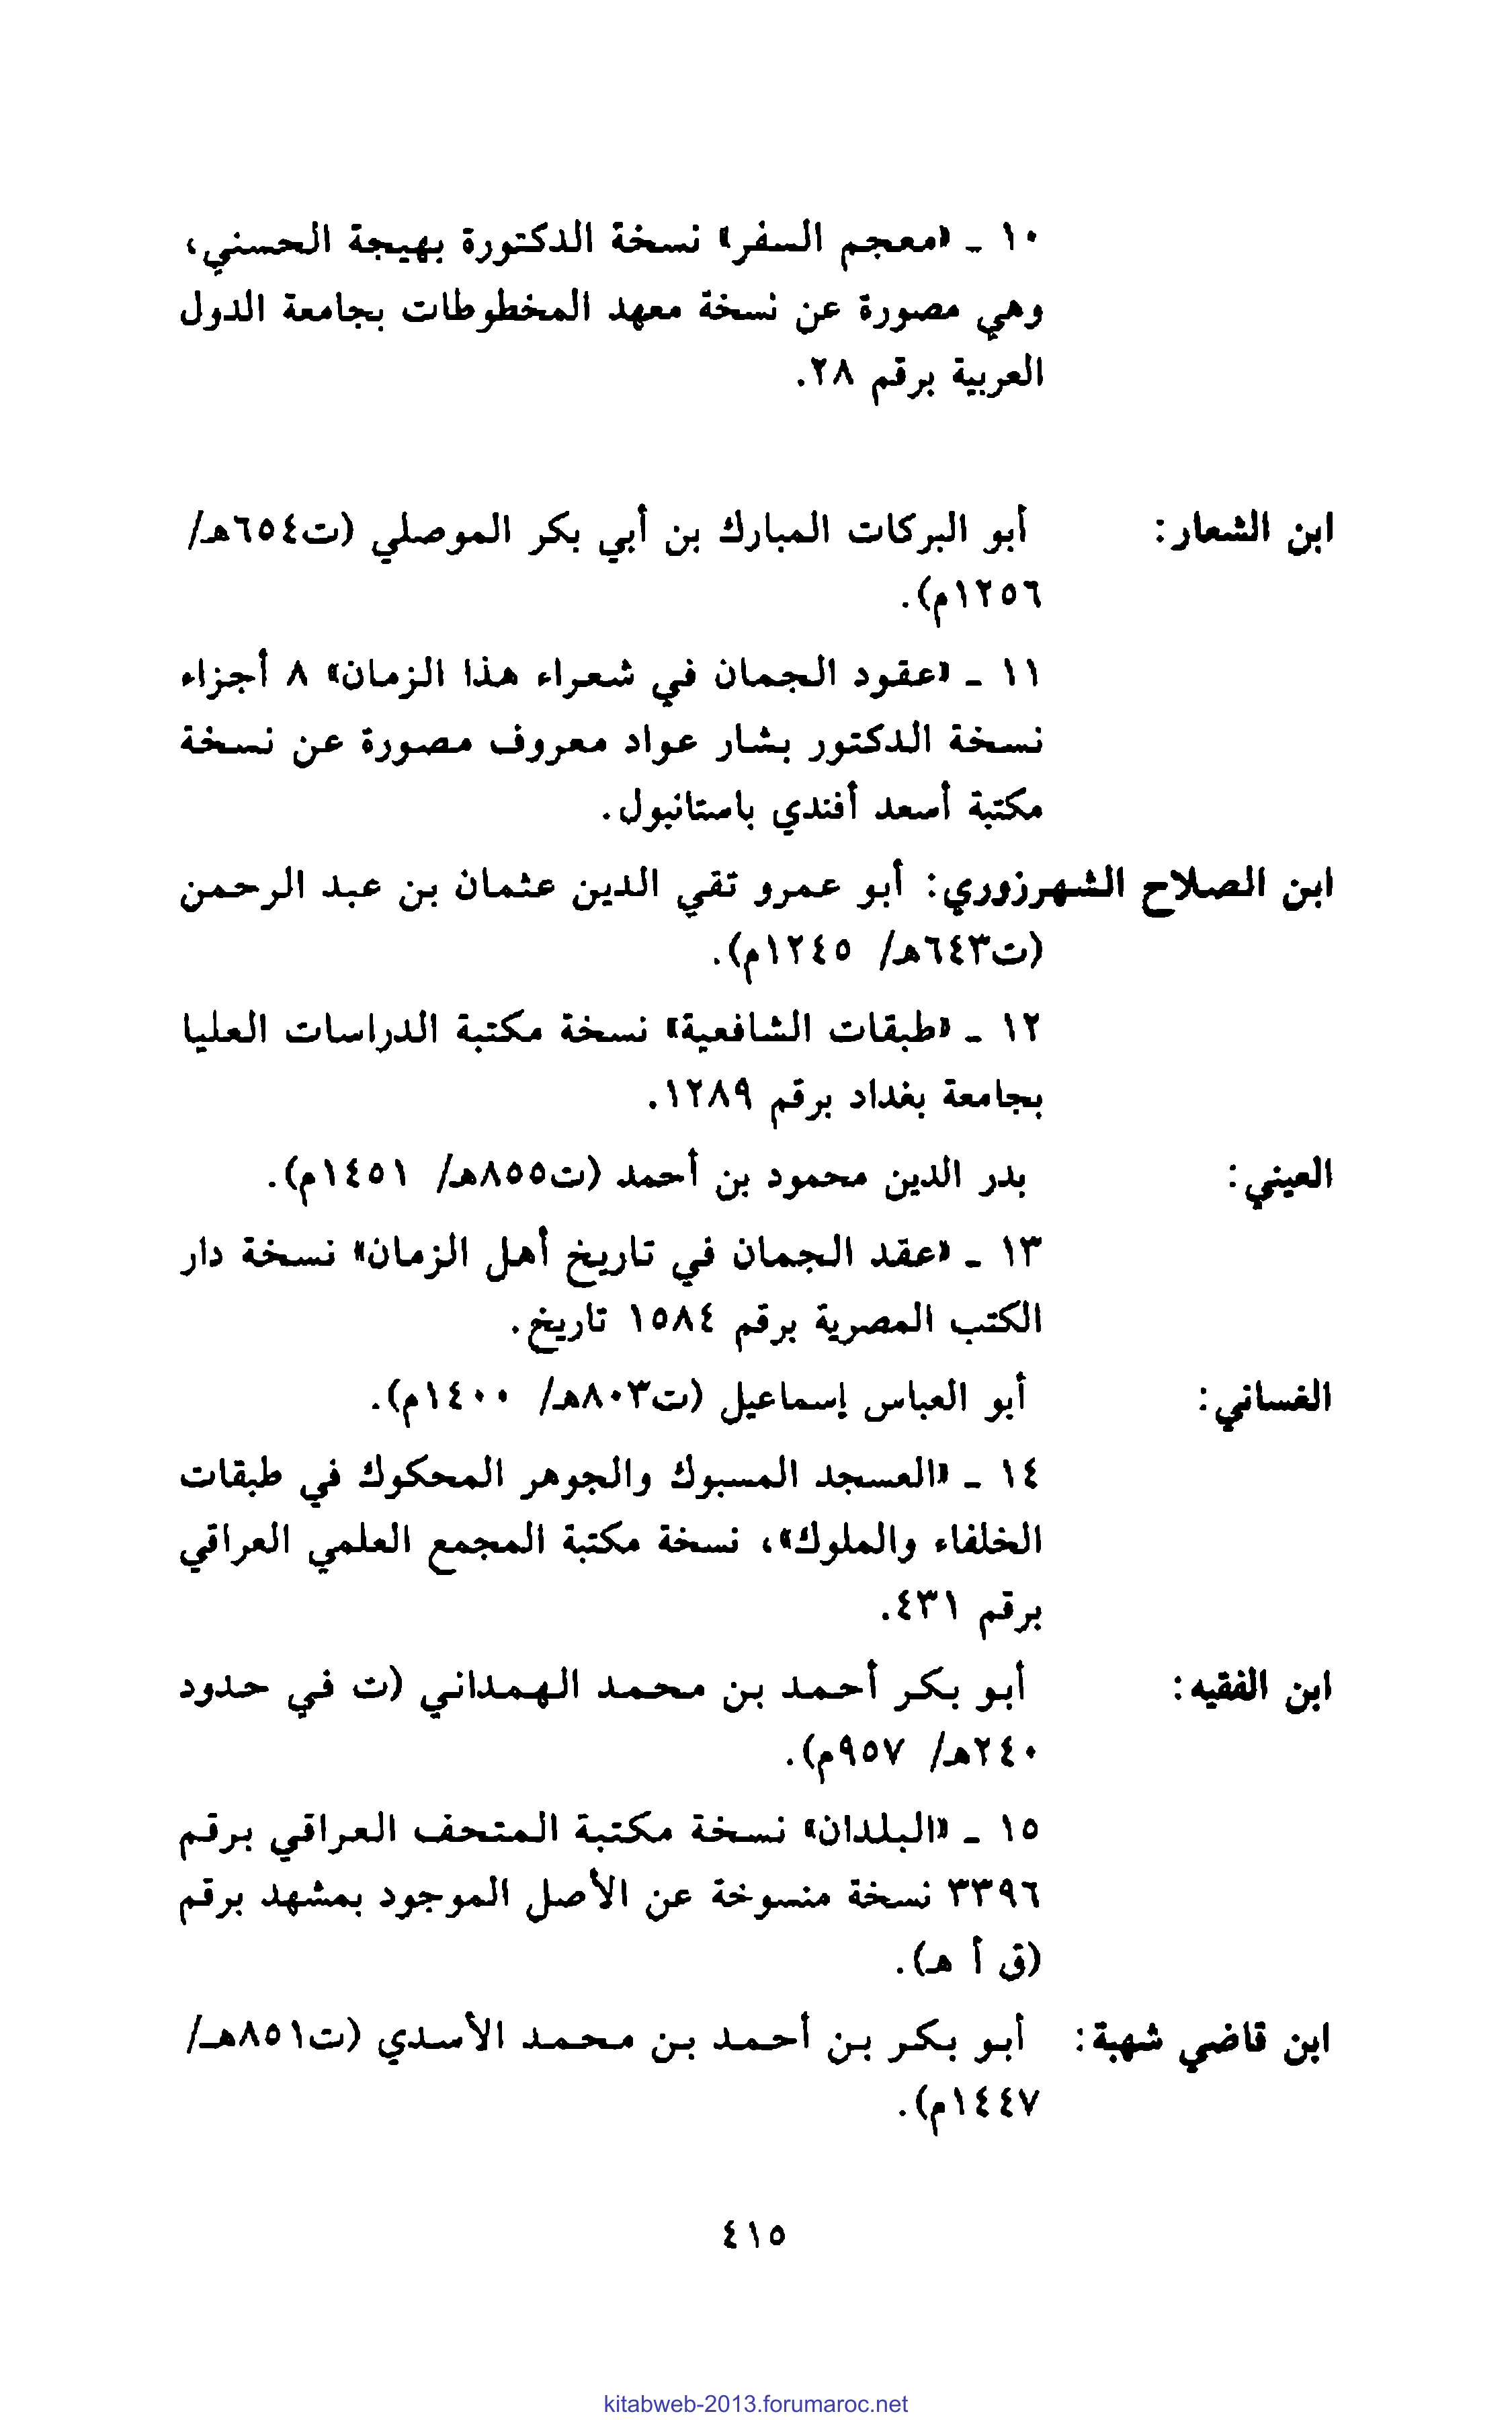 ١٠ ـ «معجم السفر» نسخة الدكتورة بهيجة الحسني،
وهي مصورة عن نسخة معهد المخطوطات بجامعة الدول
العربية برقم ٢٨.
ابن الشعار: أبو البركات المبارك بن أبي بكر الموصلي (ت٦٥٤هـ/
١٢٥٦م).
١١ ـ «عقود الجمان في شعراء هذا الزمان» ٨ أجزاء
نسخة الدكتور بشار عواد معروف مصورة عن نسخة
مكتبة أسعد أفندي باستانبول.
ابن الصلاح الشهرزوري: أبو عمرو تقي الدين عثمان بن عبد الرحمن
(ت٦٤٣هـ/ ١٢٤٥م).
١٢ ـ «طبقات الشافعية» نسخة مكتبة الدراسات العليا
بجامعة بغداد برقم ١٢٨٩.
العيني: بدر الدين محمود بن أحمد (ت٨٥٥هـ/ ١٤٥١م).
١٣ ـ «عقد الجمان في تاريخ أهل الزمان» نسخة دار
الكتب المصرية برقم ١٥٨٤ تاريخ.
الغساني: أبو العباس إسماعيل (ت٨٠٣هـ/ ١٤٠٠م).
١٤ ـ «العسجد المسبوك والجوهر المحكوك في طبقات
الخلفاء والملوك»، نسخة مكتبة المجمع العلمي العراقي
برقم ٤٣١.
ابن الفقيه: أبو بكر أحمد بن محمد الهمداني (ت في حدود
٢٤٠هـ/ ٩٥٧م).
١٥ ـ «البلدان» نسخة مكتبة المتحف العراقي برقم
٣٣٩٦ نسخة منسوخة عن الأصل الموجود بمشهد برقم
(ق أ هـ).
ابن قاضي شهبة: أبو بكر بن أحمد بن محمد الأسدي (ت٨٥١هـ/
١٤٤٧م).
٤١٥
kitabweb-2013.forumaroc.net